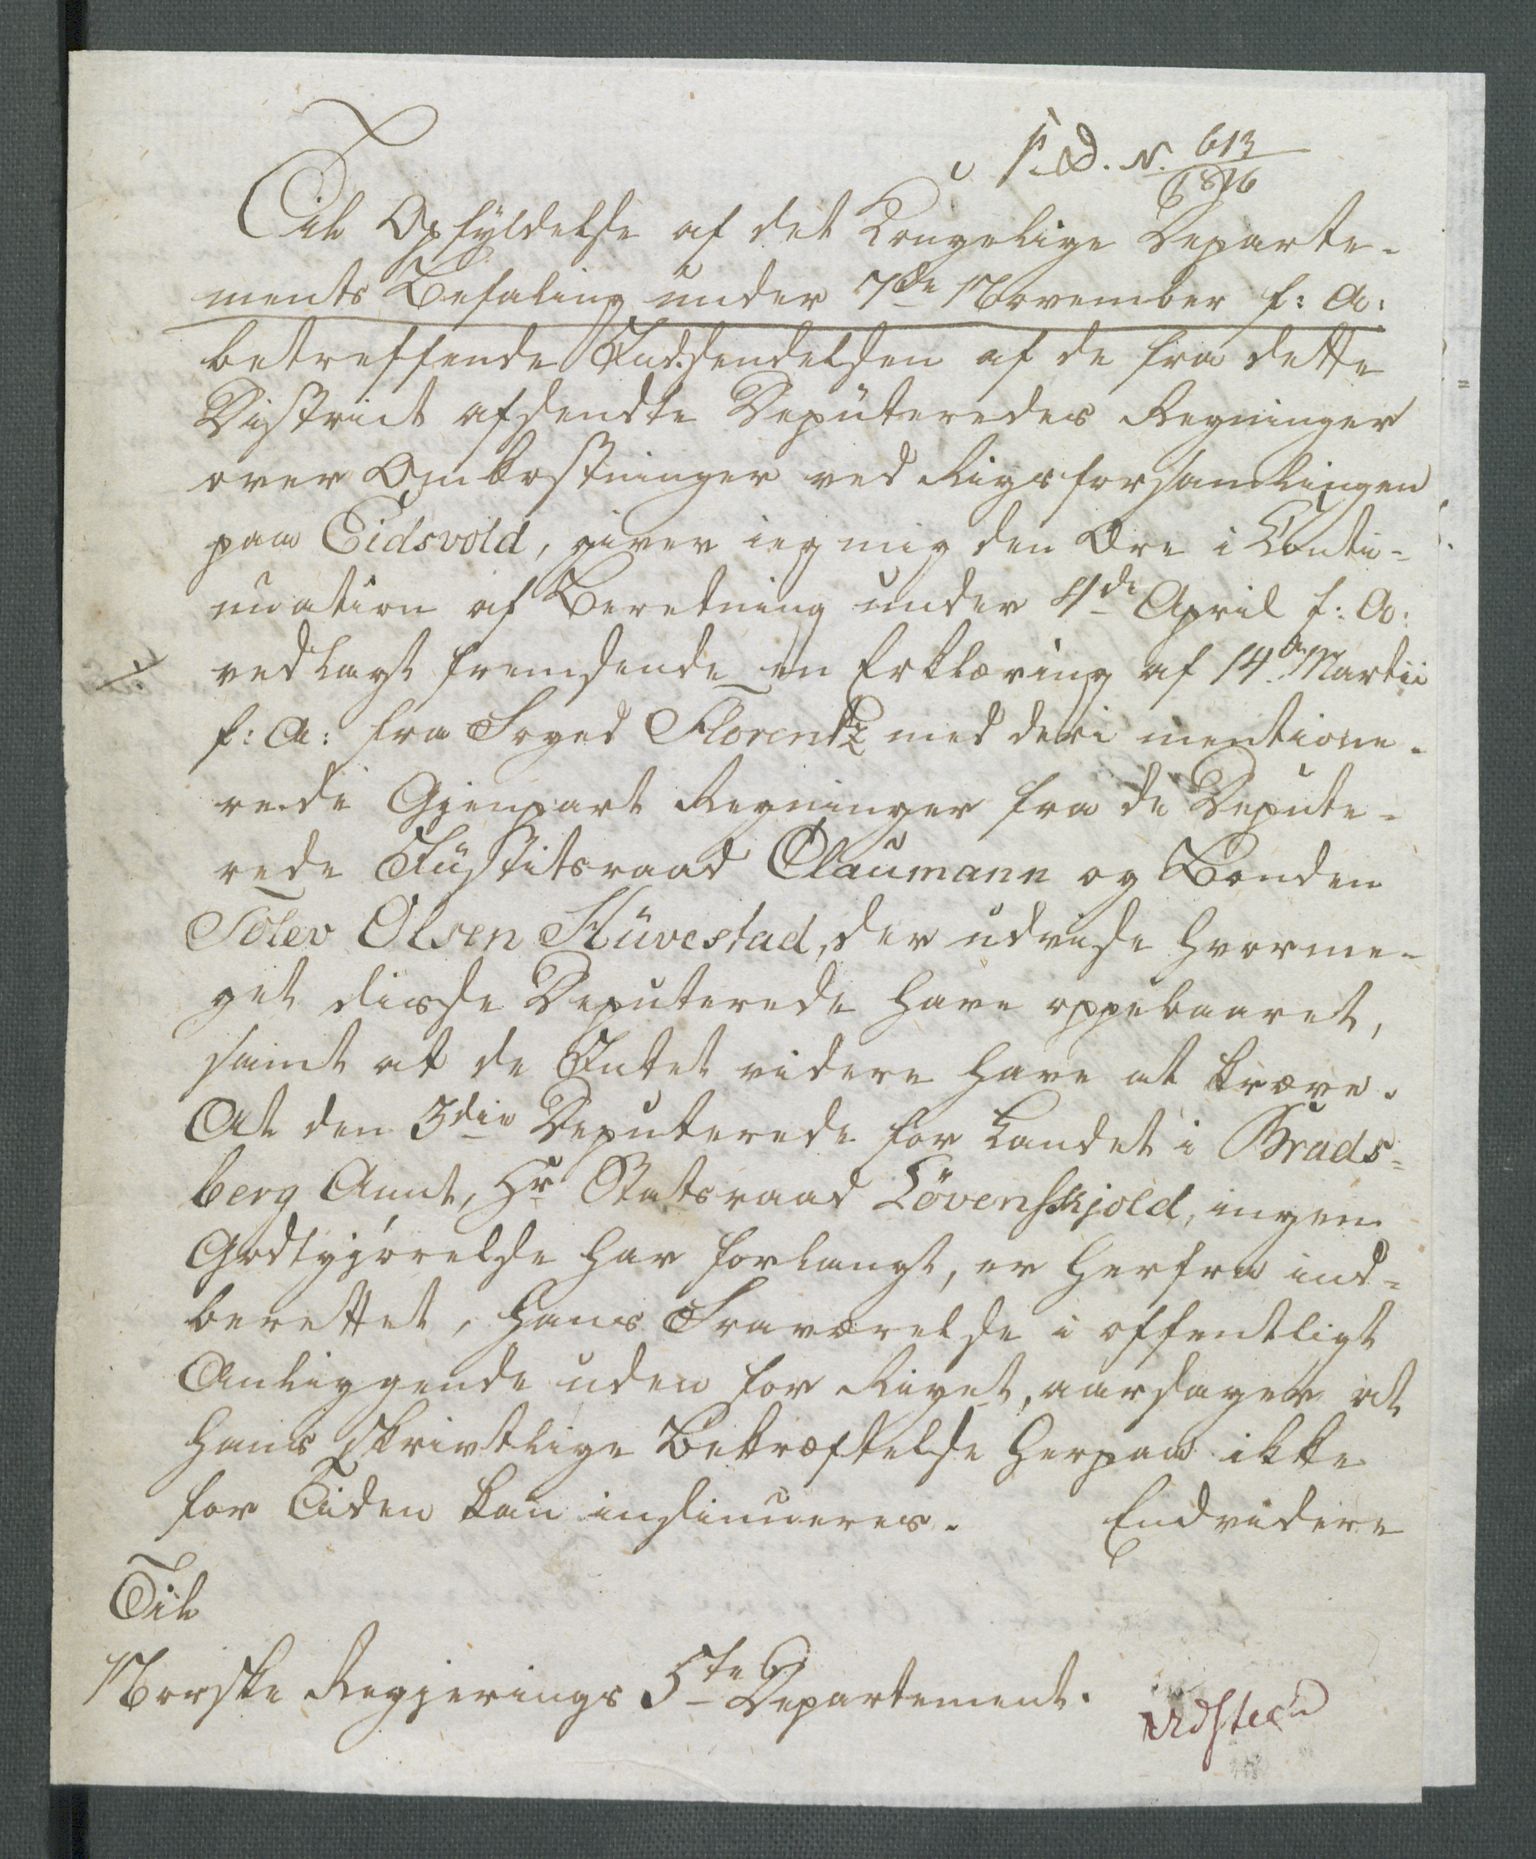 N. 613
1816
Til Opfyldelse af det Kongelige Departe-
ments Befaling under 7de November f: A:
betreffende Indsendelsen af de fra dette
District afsendte Deputeredes Regninger
over Omkostninger ved Rigsforsamlingen
paa Eidsvold, giver ieg mig den Ære i Conti-
nuation af Beretning under 4de April f: A:
vedlagt fremsende en Erklæring af 14de Martii
f: A: fra Foged Florentz med deri mentione-
rede Gjenpart Regninger fra de Depute-
rede Justitsraad Claumann og Bonden
Tolev Olsen Hüvestad, der udvise hvorme-
get disse Deputerede have oppebaaret,
samt at de Intet videre have at kræve.
At den 3die Deputerede for Landet i Brads-
berg Amt, Hr Statsraad Lövenskjold, ingen
Godtgjørelse har forlangt, er herfra ind-
berettet, hans Fraværelse i offentligt
Anliggende uden for Riget, aarsager at
hans skrivtlige Bekræftelse herpaa ikke
for Tiden kan insinueres. Endvidere
Til
Norske Regjerings 5te Departement.